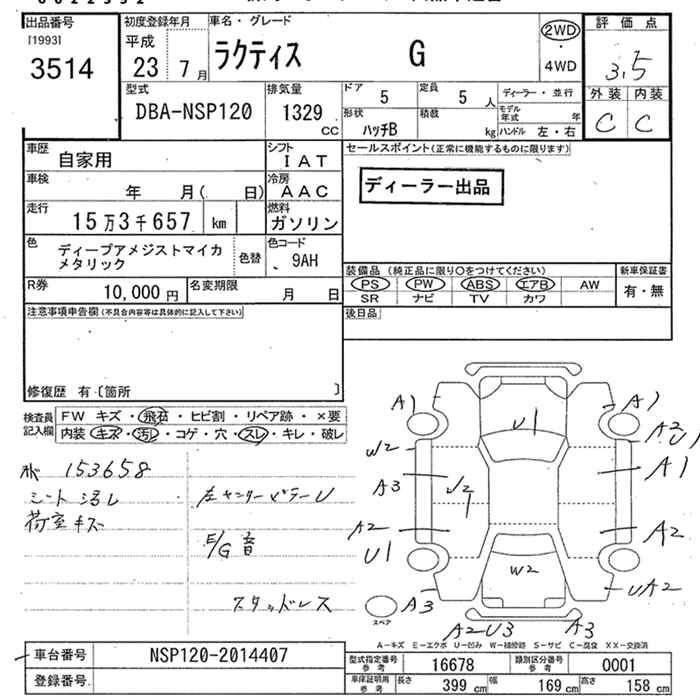 出品番号
[1993]
3514
初度登録年月
平成
23 7月
車名・グレード
ラクティス G
2WD
・
4WD
評価点
3.5
外装 内装
C C
型式
DBA-NSP120
排気量
1329
CC
ドア 5
定員 5 人
形状
ハッチB
積載 kg
ディーラー・並行
モデル年式 年
ハンドル 左・右
車歴
自家用
シフト
IAT
車検
年 月( 日)
冷房
AAC
走行
15万3千657 km
燃料
ガソリン
色
ディープアメジストマイカ
メタリック
色替
色コード
9AH
R券
10,000円
名変期限
月 日
セールスポイント(正常に機能するものに限ります)
ディーラー出品
装備品 (純正品に限り〇をつけてください)
PS PW ABS エアB AW
SR ナビ TV カワ
新車保証書
有・無
後日品
注意事項申告欄(不具合内容等は具体的に記入して下さい)
修復歴 有〔箇所 〕
検査員
記入欄
FW キズ・飛石・ヒビ割・リペア跡・×要
内装 キズ・汚レ・コゲ・穴・スレ・キレ・破レ
153658
シート汚レ
荷室キズ
左センターピラーU
E/G音
スタッドレス
A1
U1
A1
A2
U1
W2
A3
U2
A1
A2
U1
A2
W2
A3
UA2
A2U3
A3
スペア
A-キズ E-エクボ U-凹み W-補修跡 S-サビ C-腐食 XX-交換済
車台番号
NSP120-2014407
登録番号
型式指定番号
参考
16678
類別区分番号
参考
0001
車保証明用
参考
長さ 399 cm
幅 169 cm
高さ 158 cm